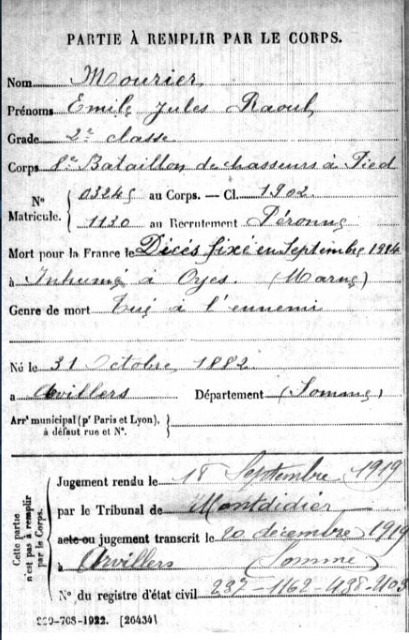 PARTIE À REMPLIR PAR LE CORPS.
Nom Mourier
Prénoms Emile Jules Raoul
Grade 2e classe
Corps 8e Bataillon de chasseurs à Pied
No Matricule. { 03245 au Corps. — Cl. 1902
1130 au Recrutement Péronne
Mort pour la France le Décès fixé en Septembre 1914
à Inhumé à Oyes. (Marne)
Genre de mort Tué à l'ennemi
Né le 31 Octobre 1882
a Arvillers Département (Somme)
Arrt municipal (pr Paris et Lyon),
à défaut rue et No.
Cette partie
n'est pas à remplir
par le Corps.
Jugement rendu le 18 Septembre 1919
par le Tribunal de Montdidier
acte ou jugement transcrit le 20 décembre 1919
à Arvillers (Somme)
No du registre d'état civil 237-1162-438-403